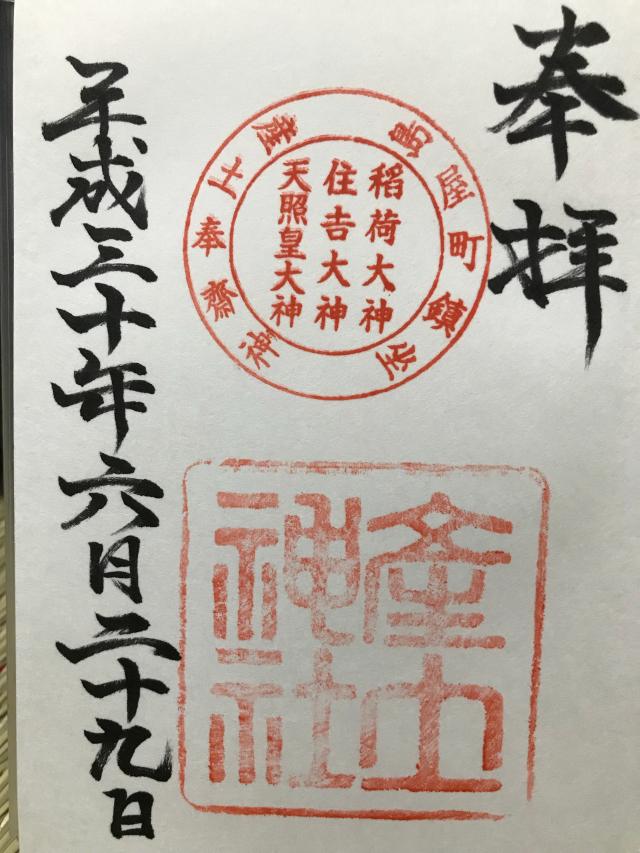 奉拝
屋町鎮座
産土奉齋神
稲荷大神
住吉大神
天照皇大神
産土
神社
平成三十年六月二十九日